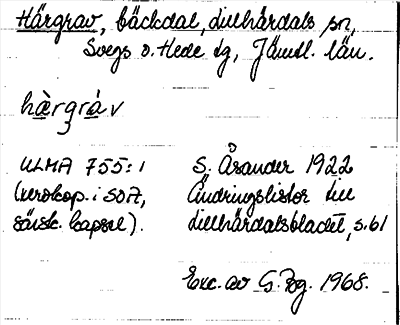 Härgrav, bäckdal, Lillhärdals sn,
Svegs o. Hede tg, Jämtl. län.
hàrgràv
ULMA 755:1
(xerokop. i SOA,
särsk. kapsel).
S. Åsander 1922
Ändringslistor till
Lillhärdalsbladet, s. 61
Exc. av G. Bg. 1968.